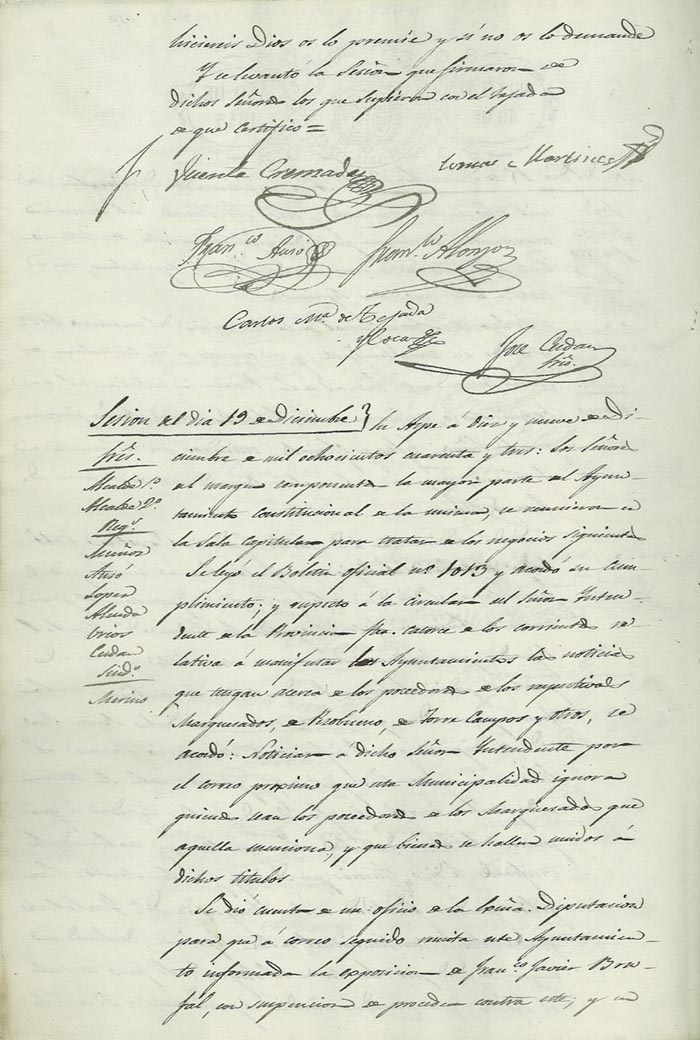 hicieseis Dios os lo premie y si no os lo demande
Y se levantó la Sesion que firmaron de
dichos Señores los que supieron con el Tejada
de que certifico =
Vicente Cremades
Tomas Martinez
Fran.co Auso
Fran.co Alonso
Carlos M.a de Tejada
y Loca
Jose Cerdan
Srio.
Sesion del dia 19 de Diciembre } En Aspe á diez y nueve de Di-
Sres.
Alcalde 1.o
Alcalde 2.o
Reg.s
Muñoz
Ausó
Lopez
Almida
Orios
Cerdan
Sind.o
Merino
ciembre de mil ochocientos cuarenta y tres: los Señores
del margen componentes la mayor parte del Ayun-
tamiento Constitucional de la misma, se reunieron en
la Sala Capitular para tratar de los negocios siguientes
Se leyó el Boletin oficial n.o 1013 y acordó su cum-
plimiento; y respecto á la circular del Señor Inten-
dente de la Provincia fha. catorce de los corrientes re-
lativa á manifestar los Ayuntamientos las noticias
que tengan acerca de los poseedores de los respectivos
Marquesados, de Riobueno, de Torre Campos y otros, se
acordó: Noticiar á dicho Señor Intendente por
el correo proximo que esta Municipalidad ignora
quienes sean los poseedores de los Marquesados que
aquella menciona, y que bienes se hallen unidos á
dichos titulos
Se dió cuenta de un oficio de la Exma. Diputacion
para que á correo seguido remita este Ayuntamien-
to informada la exposicion de Fran.co Javier Bru-
fal, con suspencion de proceder contra este; y en